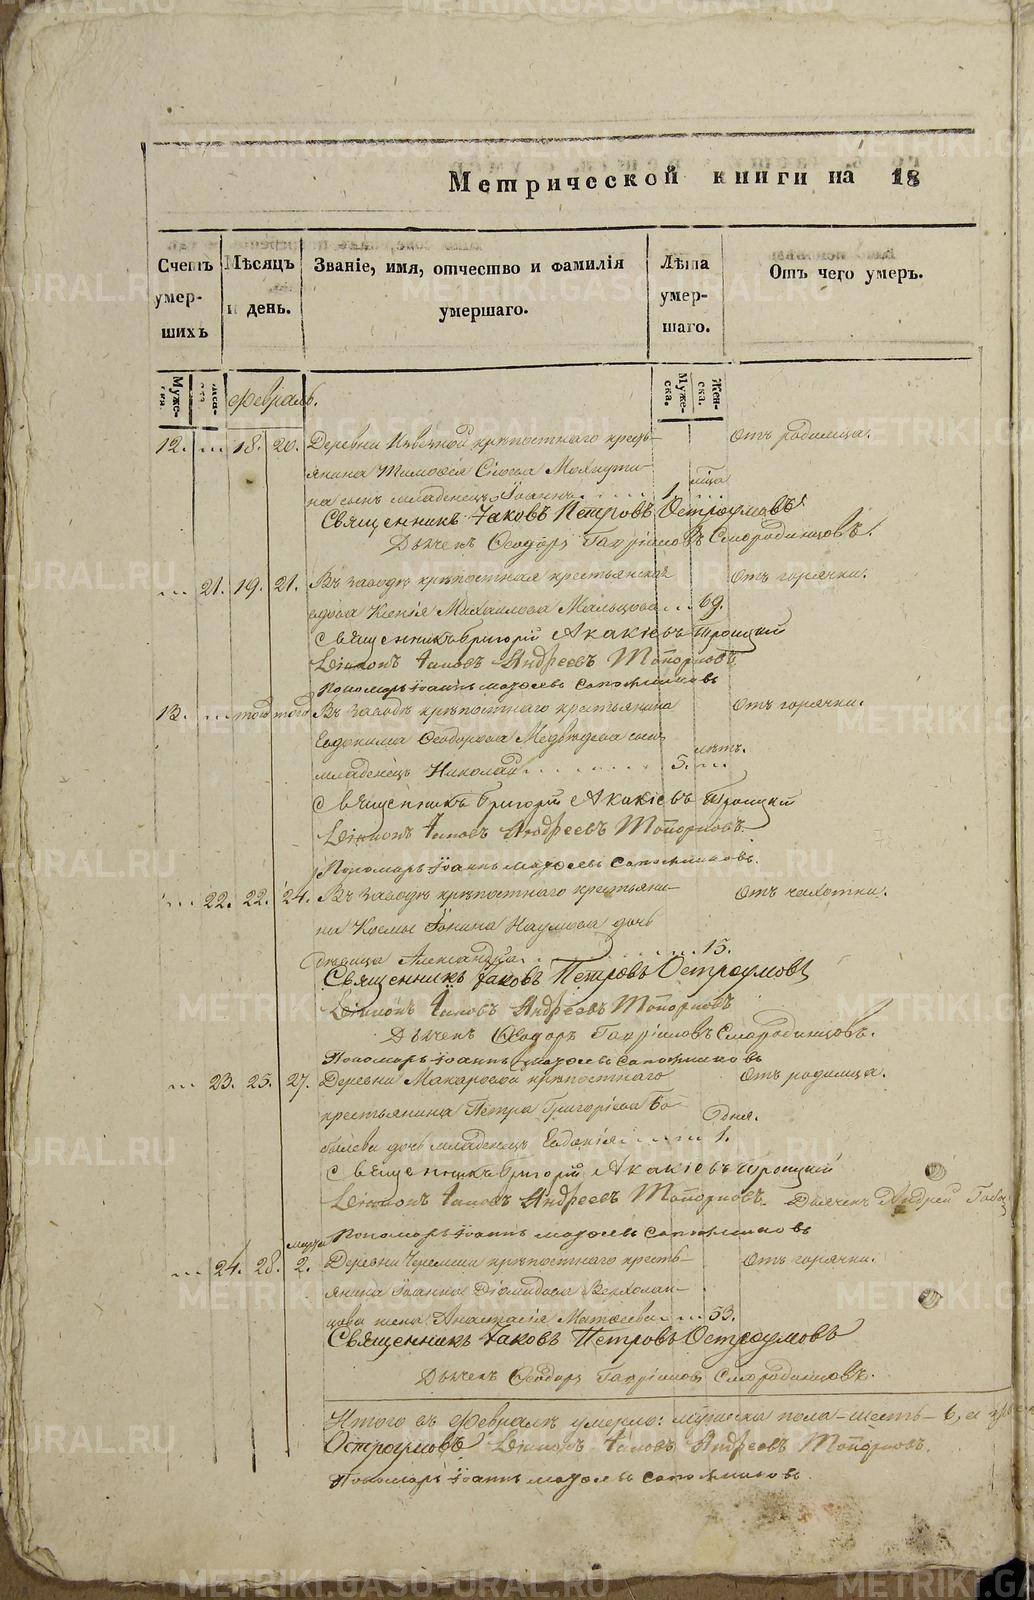 Метрической книги на 18
Счетъ умер-шихъ
Мѣсяцъ и день.
Званіе, имя, отчество и фамилія умершаго.
Лѣта умер-шаго.
Отъ чего умеръ.
Муже-ска. Жен-ска.
Февраль.
12. ... 18. 20. Деревни крѣпостнаго кресть- Отъ родимца.
янина Тимофея
на сынъ младенецъ Іоаннъ. 1.
Священникъ Іаковъ Петровъ Остроумовъ.
Дьячекъ Ѳеодоръ Гавріиловъ Смородинцовъ.
... 21. 19. 21. Въ заводѣ крѣпостная крестьянская Отъ горячки.
вдова Ксенія Михаилова Мальцова ... 69.
Священникъ Григорій Акакіевъ Троицкій
Діаконъ Іаковъ Андреевъ Топорковъ
Пономарь Іоаннъ Матѳеевъ Сапожниковъ
13. ... того того Въ заводѣ крѣпостнаго крестьянина Отъ горячки.
Евдокима Ѳеодорова Медвѣдева сынъ лѣтъ.
младенецъ Николай 5. ...
Священникъ Григорій Акакіевъ Троицкій
Діаконъ Іаковъ Андреевъ Топорковъ.
Пономарь Іоаннъ Матѳеевъ Сапожниковъ.
... 22. 22. 24. Въ заводѣ крѣпостнаго крестьяни- Отъ чахотки.
на Космы Іонина Наумова дочь
дѣвица Александра ... 15.
Священникъ Іаковъ Петровъ Остроумовъ
Діаконъ Іаковъ Андреевъ Топорковъ
Дьячекъ Ѳеодоръ Гавріиловъ Смородинцовъ.
Пономарь Іоаннъ Матѳеевъ Сапожниковъ
... 23. 25. 27. Деревни Макаровой крѣпостнаго Отъ родимца.
крестьянина Петра Григорьева Бо- дня.
былева дочь младенецъ Евдокія ... 1.
Священникъ Григорій Акакіевъ Троицкій
Діаконъ Іаковъ Андреевъ Топорковъ. Дьячекъ Андрей
Пономарь Іоаннъ Матѳеевъ Сапожниковъ
марта
... 24. 28. 2. Деревни крѣпостнаго кресть- Отъ горячки.
янина Іоанна Діомидова Верхолан-
цова жена Анастасія Матѳеева ... 53.
Священникъ Іаковъ Петровъ Остроумовъ
Дьячекъ Ѳеодоръ Гавріиловъ Смородинцовъ.
Итого въ Февралѣ умерло: мужеска пола шесть 6, а
Остроумовъ Діаконъ Іаковъ Андреевъ Топорковъ.
Пономарь Іоаннъ Матѳеевъ Сапожниковъ
METRIKI.GASO-URAL.RU